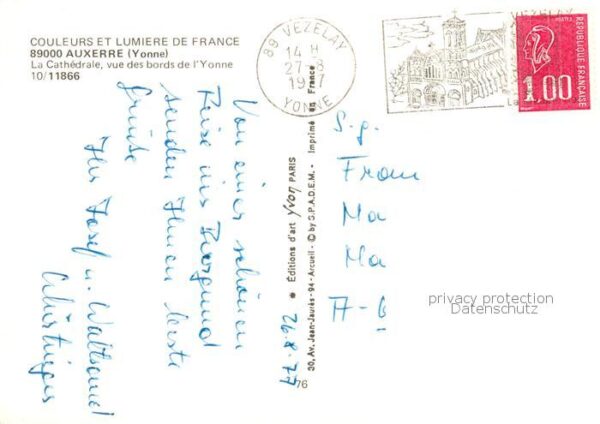 COULEURS ET LUMIERE DE FRANCE
89000 AUXERRE (Yonne)
La Cathédrale, vue des bords de l'Yonne
10/11866
89 VEZELAY
14 H
27-8
YONNE
VEZELAY
La
POSTES
REPUBLIQUE FRANÇAISE
1,00
Von einer schönen
Reise ins Burgund
senden Ihnen beste
Grüsse
Ihr Josef u. Waltraud
27.8.92
76
Editions d'art Yvon PARIS
30, Av. Jean-Jaurès - 94 - Arcueil - © by S.P.A.D.E.M. - Imprimé en France
S.g.
Frau
Ma
Ma
A-6
privacy protection
Datenschutz